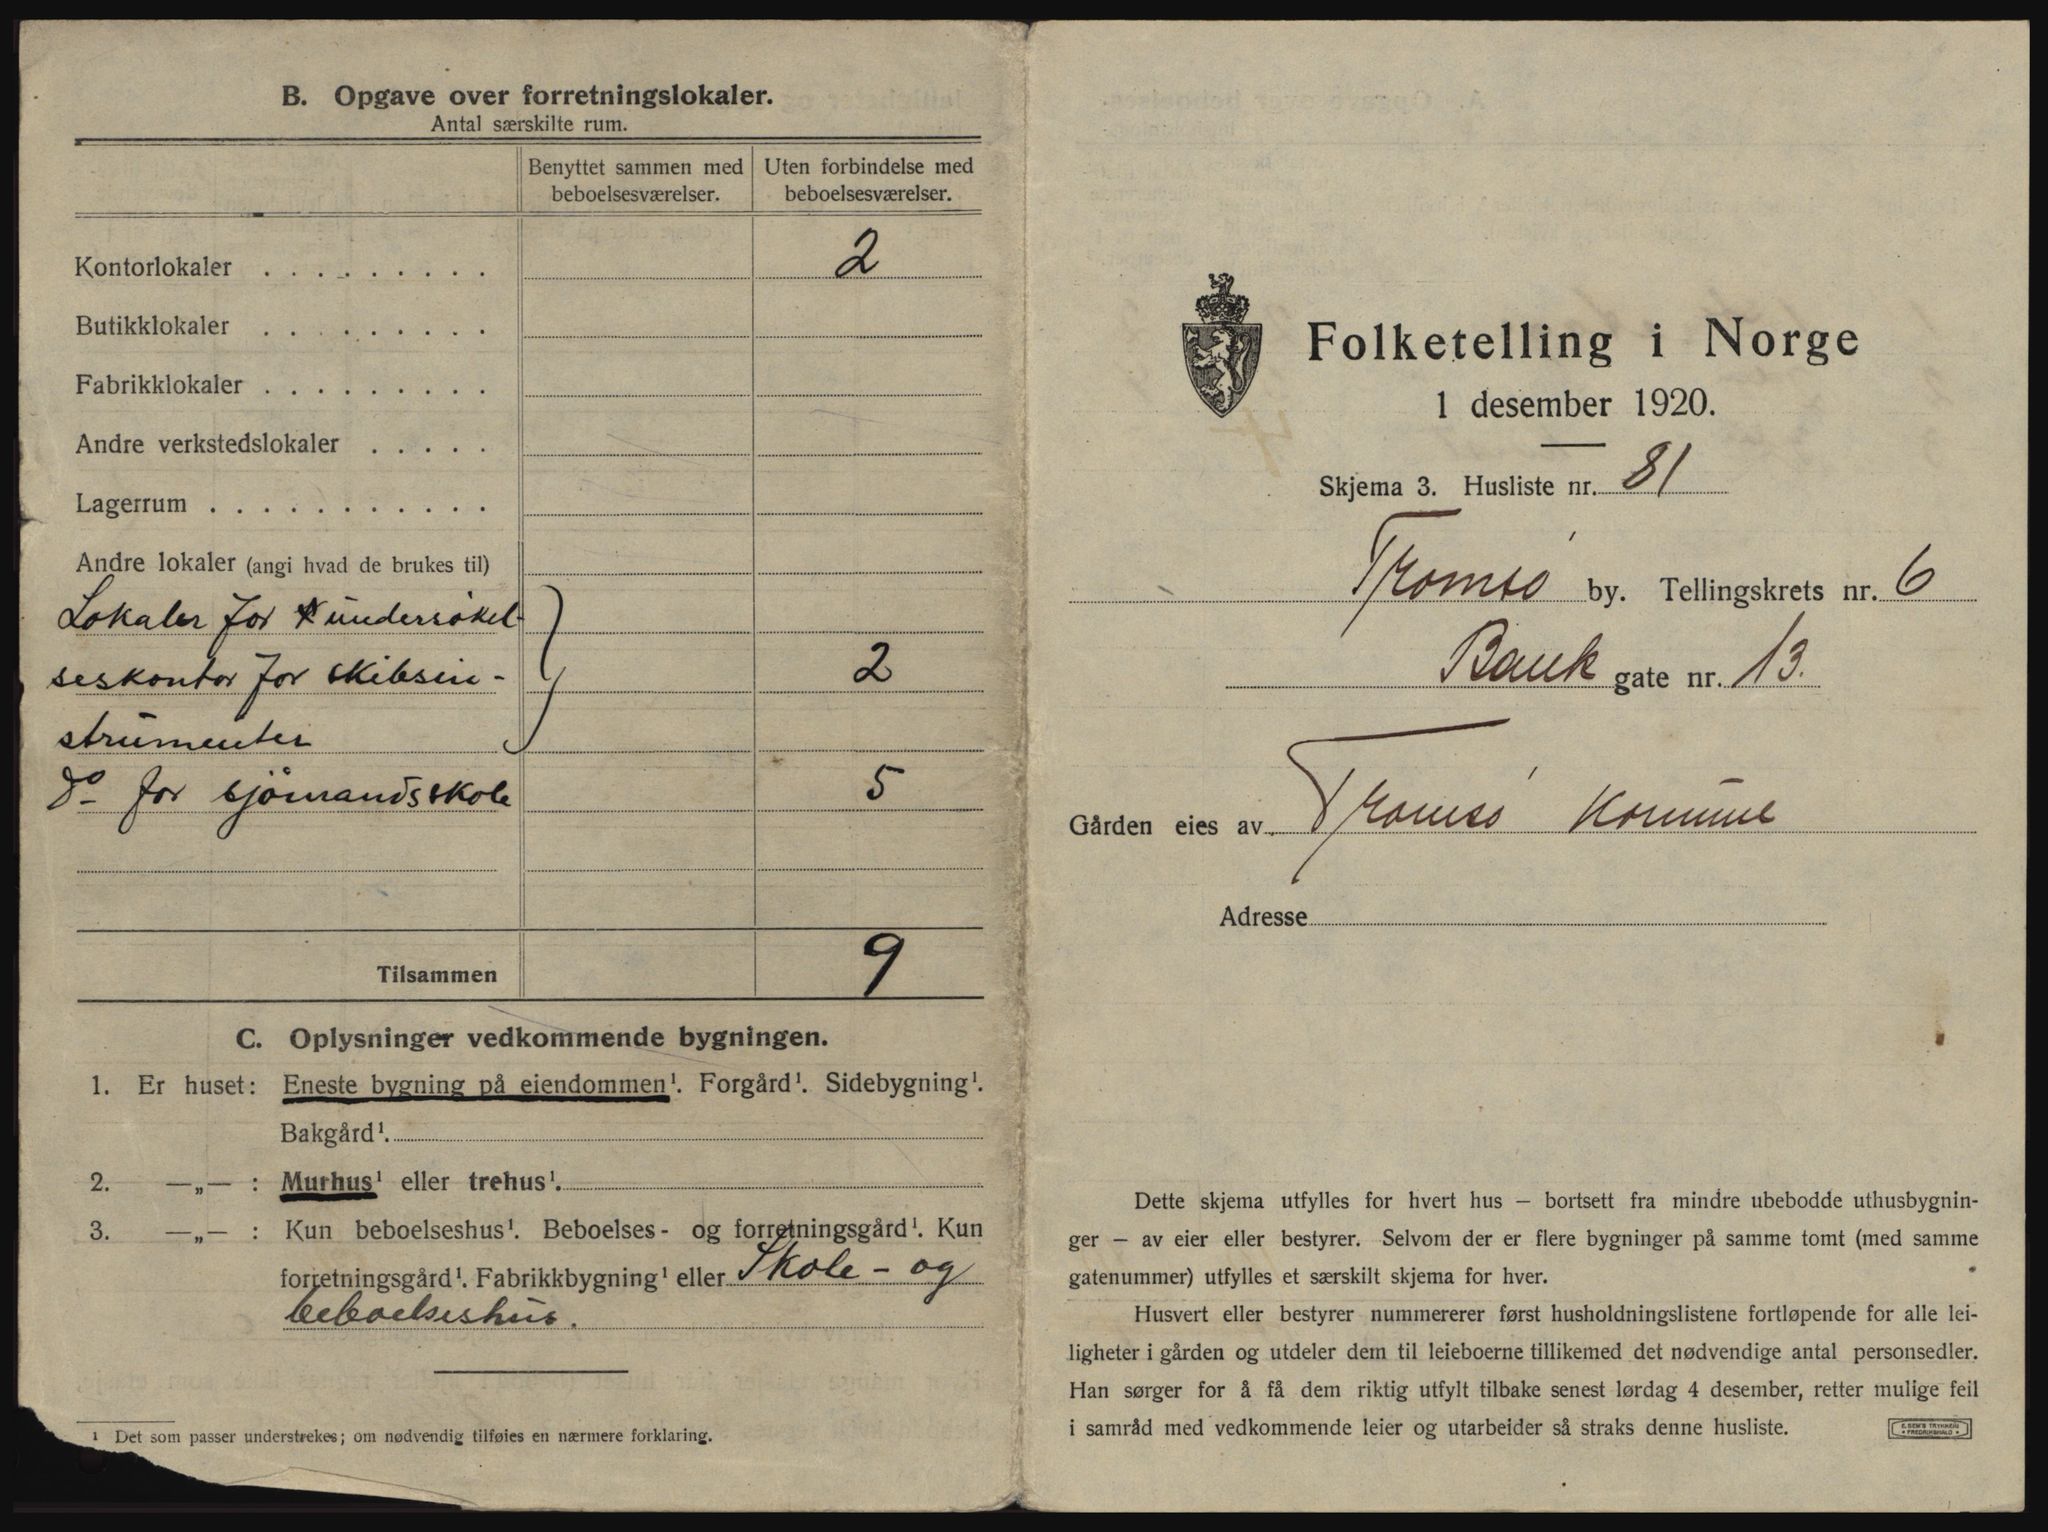 B. Opgave over forretningslokaler.
Antal særskilte rum.
Benyttet sammen med beboelsesværelser.
Uten forbindelse med beboelsesværelser.
Kontorlokaler . . . . . . . . . 2
Butikklokaler . . . . . . . . .
Fabrikklokaler . . . . . . . . .
Andre verkstedslokaler . . . . .
Lagerrum . . . . . . . . . . . .
Andre lokaler (angi hvad de brukes til)
Lokaler for undersøkel-
seskontor for skibsin- 2
strumenter
do for sjømandsskole 5
Tilsammen 9
C. Oplysninger vedkommende bygningen.
1. Er huset: Eneste bygning på eiendommen¹. Forgård¹. Sidebygning¹.
Bakgård¹.
2. —„— : Murhus¹ eller trehus¹.
3. —„— : Kun beboelseshus¹. Beboelses- og forretningsgård¹. Kun
forretningsgård¹. Fabrikkbygning¹ eller Skole - og
beboelseshus.
¹ Det som passer understrekes; om nødvendig tilføies en nærmere forklaring.
Folketelling i Norge
1 desember 1920.
Skjema 3. Husliste nr. 81
Tromsø by. Tellingskrets nr. 6
Bank gate nr. 13.
Gården eies av Tromsø Komune
Adresse
Dette skjema utfylles for hvert hus – bortsett fra mindre ubebodde uthusbygnin-
ger – av eier eller bestyrer. Selvom der er flere bygninger på samme tomt (med samme
gatenummer) utfylles et særskilt skjema for hver.
Husvert eller bestyrer nummererer først husholdningslistene fortløpende for alle lei-
ligheter i gården og utdeler dem til leieboerne tillikemed det nødvendige antal personsedler.
Han sørger for å få dem riktig utfylt tilbake senest lørdag 4 desember, retter mulige feil
i samråd med vedkommende leier og utarbeider så straks denne husliste.
E. SEM'S TRYKKERI
FREDRIKSHALD